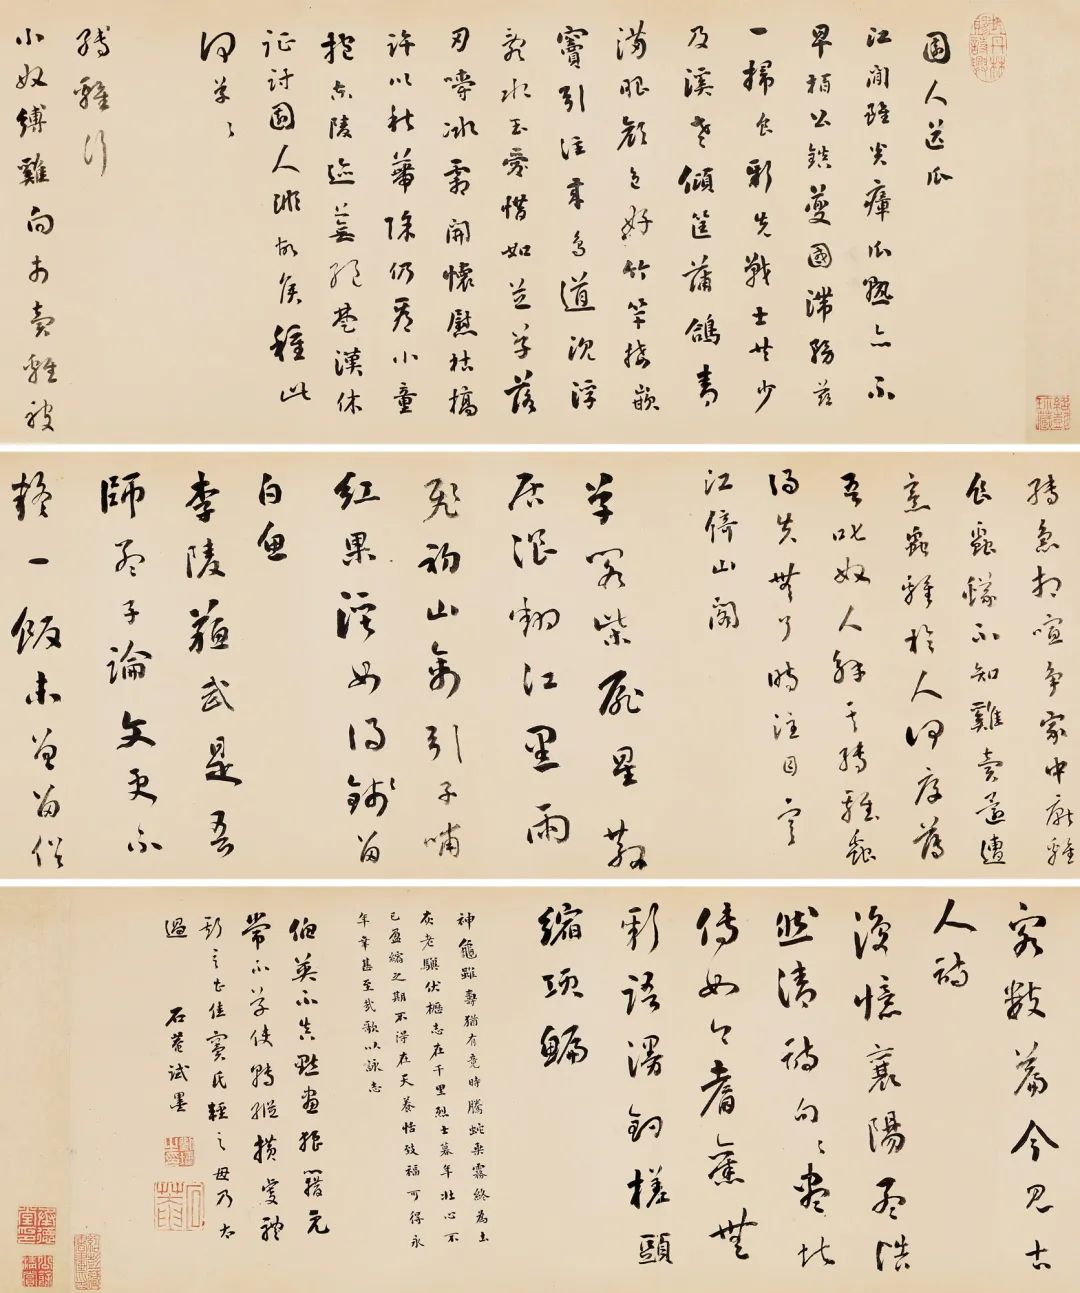 園人送瓜
江間雖炎瘴瓜熟亦不
早柏公鎮夔國滯務茲
一掃食新先戰士共少
及溪老傾筐蒲鴿青
滿眼顏色好竹竿接嵌
竇引注來鳥道沉浮
亂水玉愛惜如芝草落
刃嚼冰霜開懷慰枯槁
許以秋蒂除仍看小童
抱東陵跡蕪絕楚漢休
征討園人非故侯種此
何草々
縛雞行
小奴縛雞向市賣雞被
縛急相喧爭家中厭雞
食蟲蟻不知雞賣還遭
烹蟲雞於人何厚薄
吾叱奴人解其縛雞蟲
得失無了時注目寒
江倚山閣
草閣柴扉星散
居浪翻江黑雨
飛初山禽引子哺
紅果溪女得錢留
白魚
李陵蘇武是吾
師孟子論文更不
疑一飯未曾留俗
客數篇今見古
人詩
復憶襄陽孟浩
然清詩句々盡堪
傳如今耆舊無
新語漫釣槎頭
縮項鯿
神龜雖壽猶有竟時騰蛇乘霧終為土
灰老驥伏櫪志在千里烈士暮年壯心不
已盈縮之期不得在天養怡致福可得永
年幸甚至哉歌以詠志
伯英不真點畫狼藉元
常不草使轉縱橫虔禮
之佳竇氏輕之毋乃太
過
石菴試墨